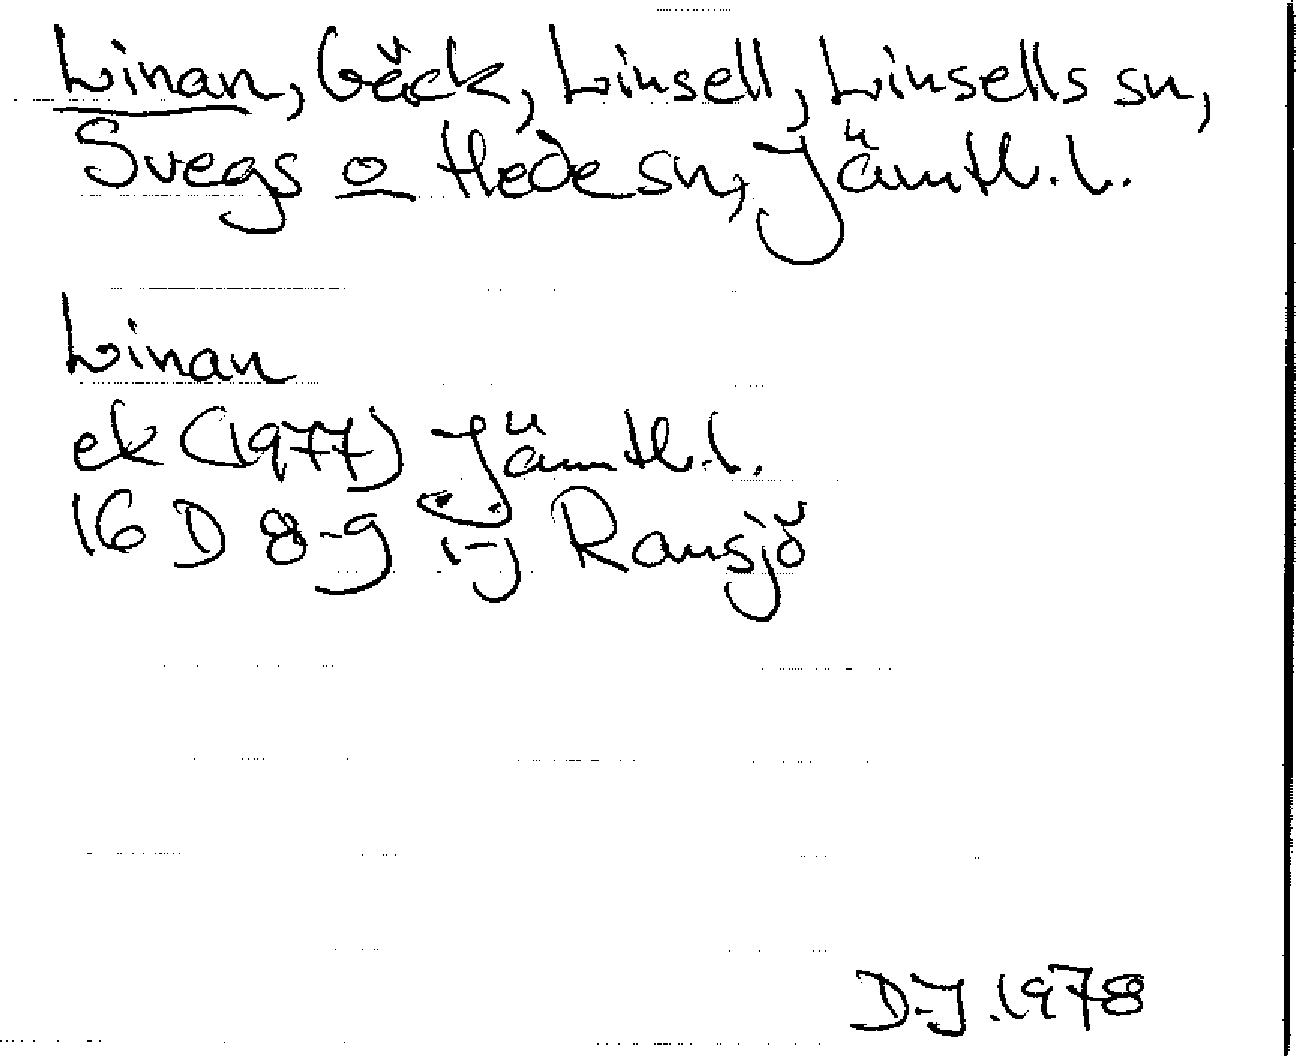 Linan, bäck, Linsell, Linsells sn,
Svegs o Hede sn, Jämtl. l.
Linan
ek (1977) Jämtl. l.
16 D 8-9 i-j Ransjö
D-J. 1978